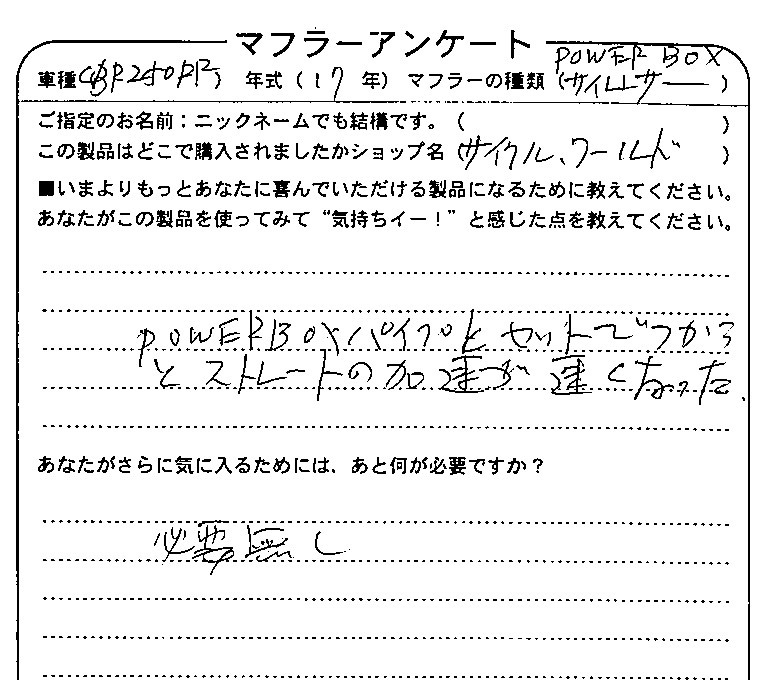 マフラーアンケート
車種(CBR250RR) 年式(17年) マフラーの種類(POWER BOX サイレンサー)
ご指定のお名前:ニックネームでも結構です。( )
この製品はどこで購入されましたかショップ名(サイクル、ワールド)
■いまよりもっとあなたに喜んでいただける製品になるために教えてください。
あなたがこの製品を使ってみて“気持ちイー!”と感じた点を教えてください。
POWERBOXパイプとセットでつかう
とストレートの加速が速くなった.
あなたがさらに気に入るためには、あと何が必要ですか?
必要無し